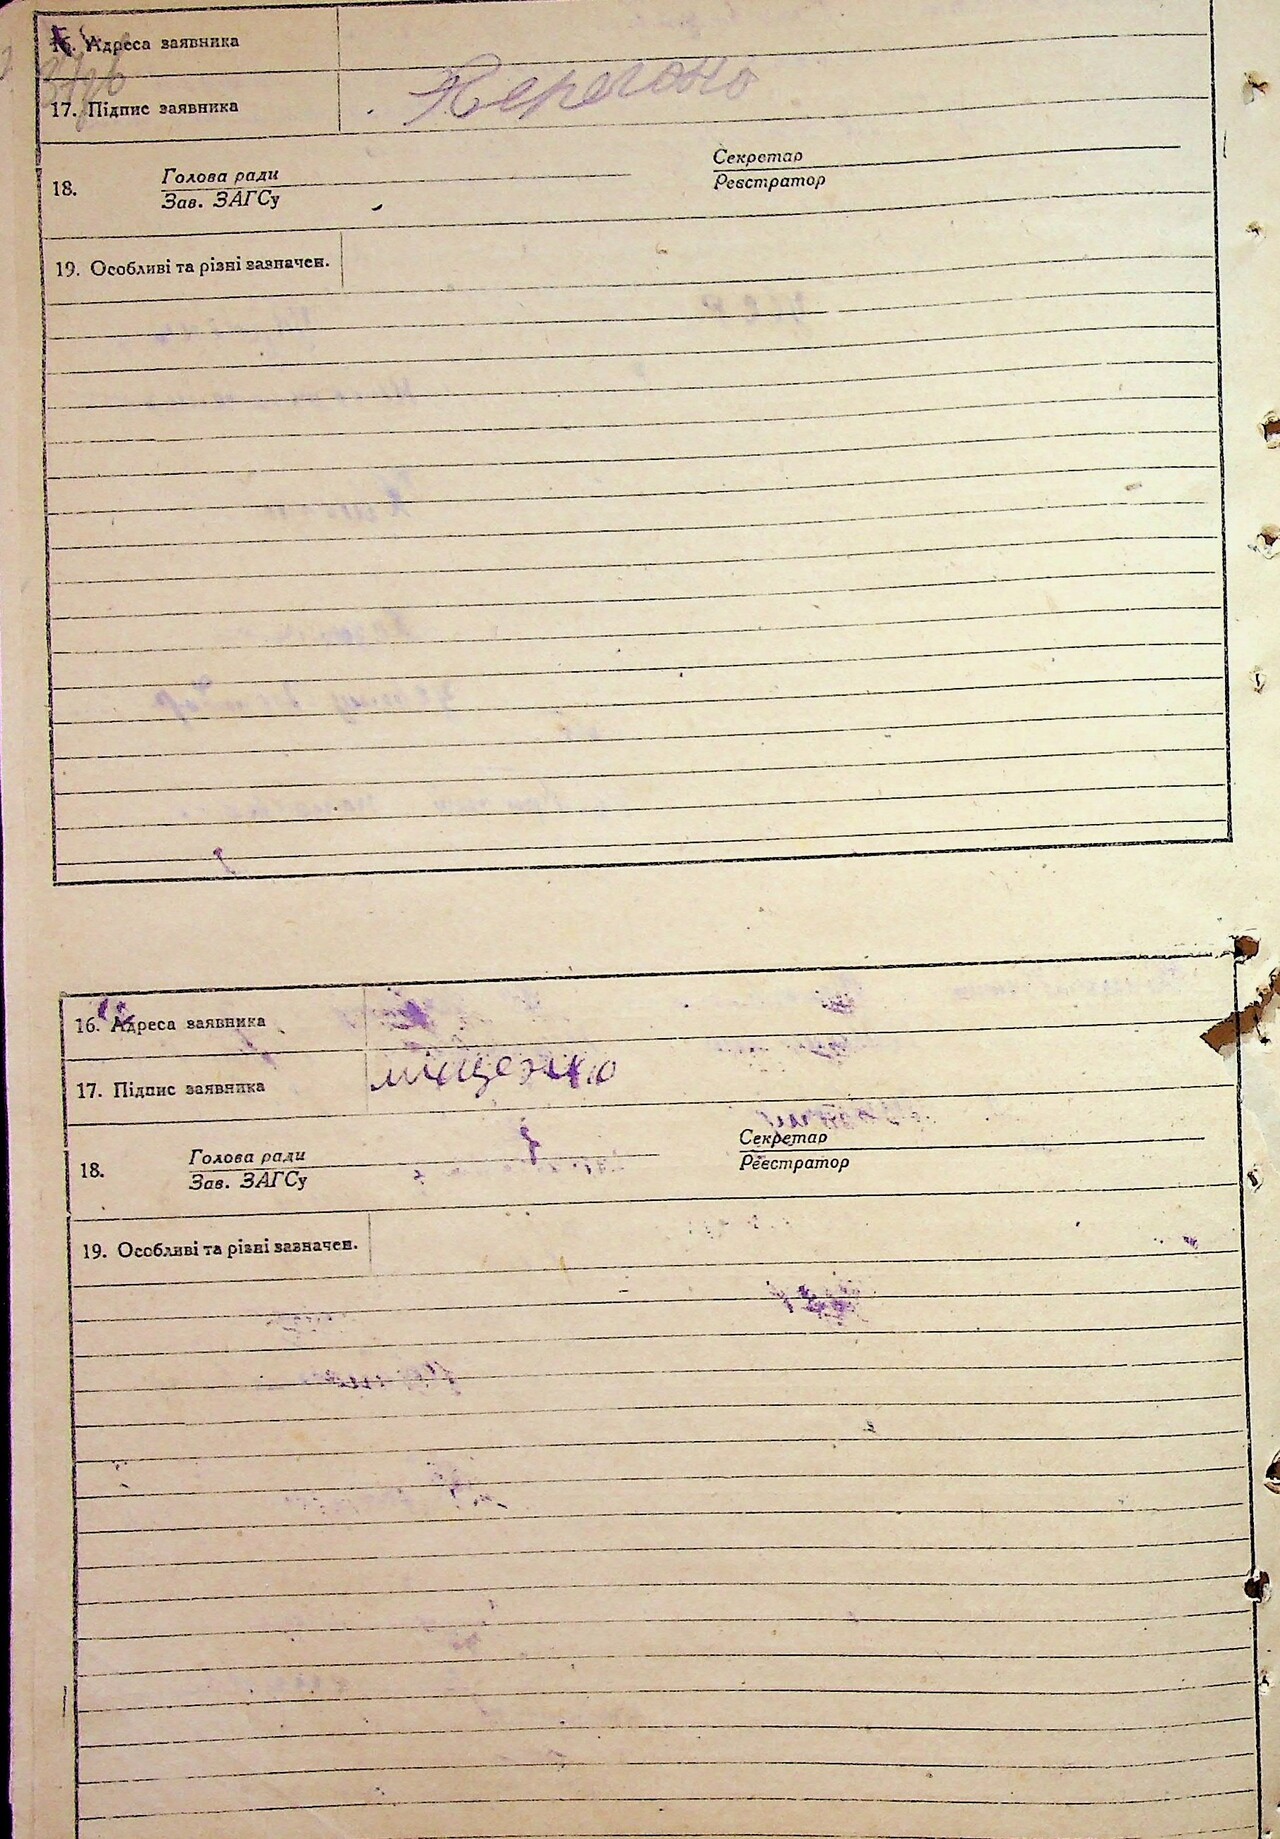 16. Адреса заявника
17. Підпис заявника
18. Голова ради Секретар
Зав. ЗАГСу Реєстратор
19. Особливі та різні зазначен.
16. Адреса заявника
17. Підпис заявника Міщенко
18. Голова ради Секретар
Зав. ЗАГСу Реєстратор
19. Особливі та різні зазначен.